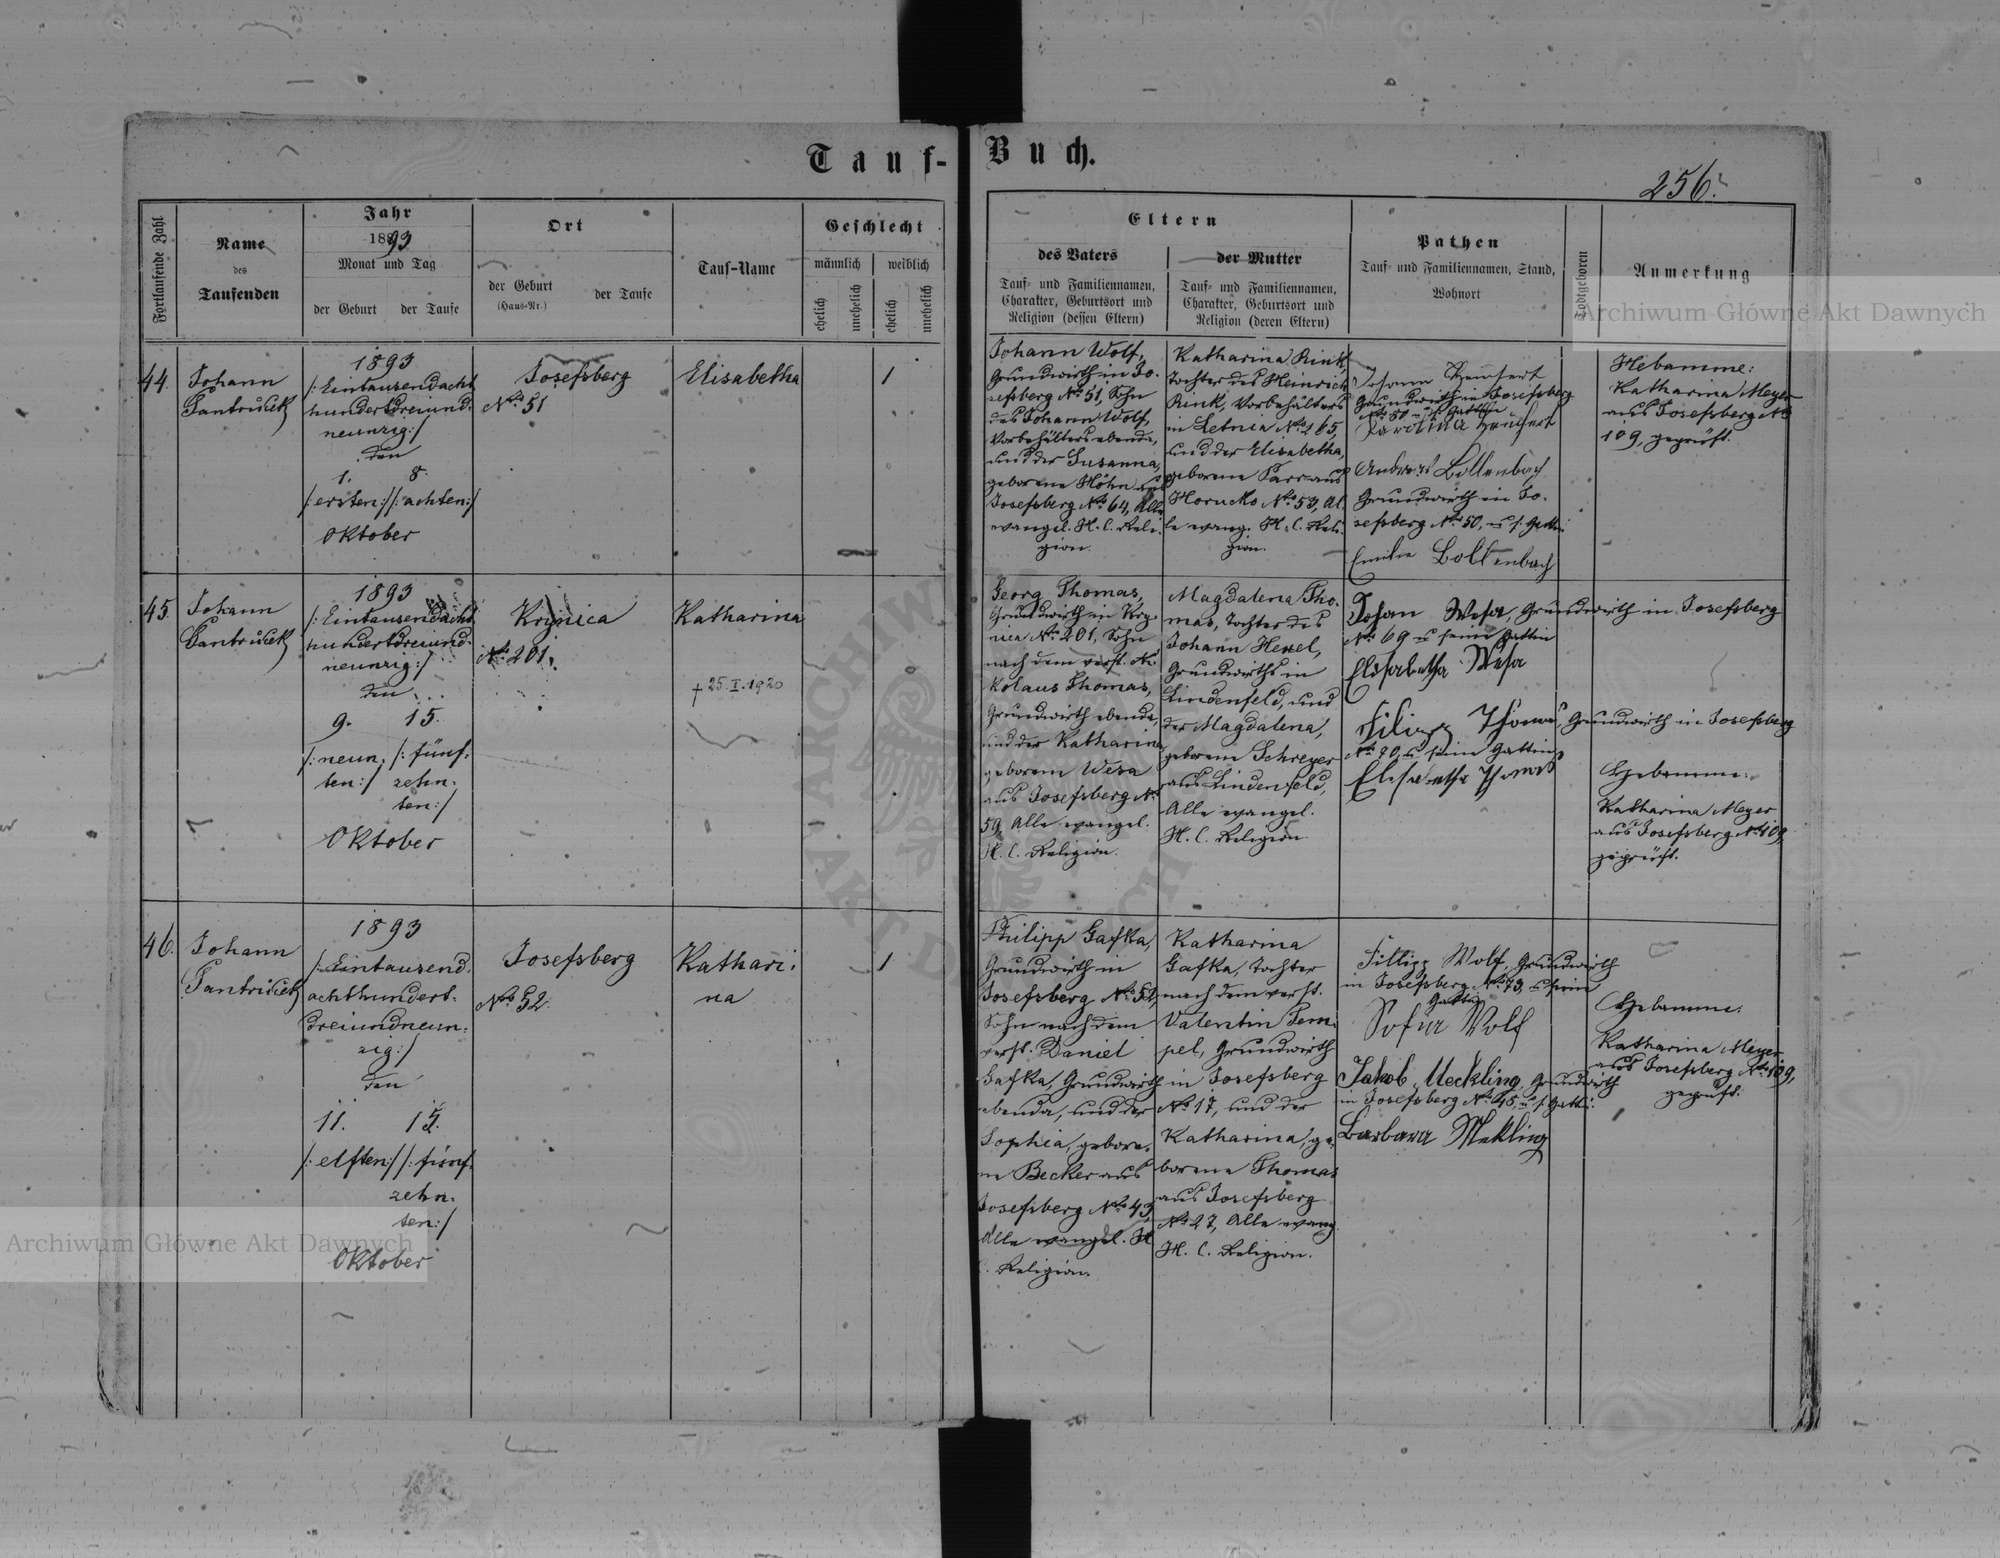 Tauf-Buch.
256.
Fortlaufende Zahl
Name
des
Taufenden
Jahr
1893
Monat und Tag
der Geburt der Taufe
Ort
der Geburt
(Haus-Nr.)
der Taufe
Tauf-Name
Geschlecht
männlich weiblich
ehelich unehelich ehelich unehelich
Eltern
des Vaters
Tauf- und Familiennamen,
Charakter, Geburtsort und
Religion (dessen Eltern)
der Mutter
Tauf- und Familiennamen,
Charakter, Geburtsort und
Religion (deren Eltern)
Pathen
Tauf- und Familiennamen, Stand,
Wohnort
Todtgeboren
Anmerkung
Archiwum Główne Akt Dawnych
44.
Johann
1893
/: Eintausendacht
hundertdreiund-
neunzig :/
den
1. 8.
/: ersten :/ /: achten :/
Oktober
Josefsberg
No 51
Elisabetha
1
Johann Wolf,
Grundwirth in Jo-
sefsberg No 51, Sohn
des Johann Wolf,
Vorbehälters ebenda,
und der Susanna,
geborene Höhn aus
Josefsberg No 64, Alle
evangel. H. C. Reli-
gion.
Katharina Rink,
Tochter des Heinrich
Rink, Vorbehälters
in Letnia No 265,
und der Elisabetha,
geborene aus
No 53, Al-
le evang. H. C. Reli-
gion.
Johann
Grundwirth in Josefsberg
No 50 u. s. Gattin
Karolina
Andreas Bollenbach
Grundwirth in Jo-
sefsberg No 50, u. s. Gattin
Emilie Bollenbach
Hebamme:
Katharina Meyer
aus Josefsberg No
109, geprüft.
45.
Johann
1893
/: Eintausendacht
hundertdreiund-
neunzig :/
den
9. 15.
/: neun- /: fünf-
ten :/ zehn-
ten :/
Oktober
Krynica
No 201.
Katharina
† 25.I.1920
Georg Thomas,
Grundwirth in Kry-
nica No 201, Sohn
nach dem verst. Ni-
kolaus Thomas,
Grundwirth ebenda,
und der Katharina
geborene Wesa
aus Josefsberg No
59, Alle evangel.
H. C. Religion.
Magdalena Tho-
mas, Tochter des
Johann
Grundwirths in
Lindenfeld, und
der Magdalena,
geborene Schreyer
aus Lindenfeld,
Alle evangel.
H. C. Religion.
Johan Wesa, Grundwirth in Josefsberg
No 69 u seine Gattin
Elisabetha Wesa
Filipp Thomas, Grundwirth in Josefsberg
No 70, u. sein Gattin
Elisabetha Thomas
Hebamme:
Katharina Meyer
aus Josefsberg No 109,
geprüft.
46.
Johann
1893
/: Eintausend-
achthundert-
dreiundneun-
zig :/
den
11. 15.
/: elften :/ /: fünf-
zehn-
ten :/
Oktober
Josefsberg
No 52.
Kathari-
na
1
Philipp Gafka,
Grundwirth in
Josefsberg No 52,
Sohn nach dem
verst. Daniel
Gafka, Grundwirth
ebenda, und der
Sophia, gebore-
ne Becker aus
Josefsberg No 43,
Alle evangel. H.
C. Religion.
Katharina
Gafka, Tochter
nach dem verst.
Valentin Tem-
pel, Grundwirth
in Josefsberg
No 17, und der
Katharina, ge-
borene Thomas
aus Josefsberg
No 27, Alle evang.
H. C. Religion.
Filipp Wolf, Grundwirth
in Josefsberg No 73, u. seine
Gattin
Sofia Wolf
Jakob Meckling, Grundwirth
in Josefsberg No 45, u. s. Gattin
Barbara Mekling
Hebamme:
Katharina Meyer
aus Josefsberg No 109,
geprüft.
Archiwum Główne Akt Dawnych